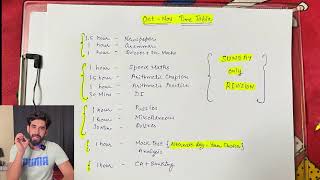 Oct - Nov Time Table
1.5 hour - Newspapers
1 hour - Grammar
1 hour -
1 hour - Speed Maths
1.5 hour - Arithmetic Chapter
1 hour - Arithmetic Practice
30 Mins - DI
SUNDAY
only
REVISION
1 hour - Puzzles
1 hour - Miscellaneous
30 Mins -
1 hour - Mock Test {Alternate day -
Analysis
1 hour - CA + Banking
PUMA